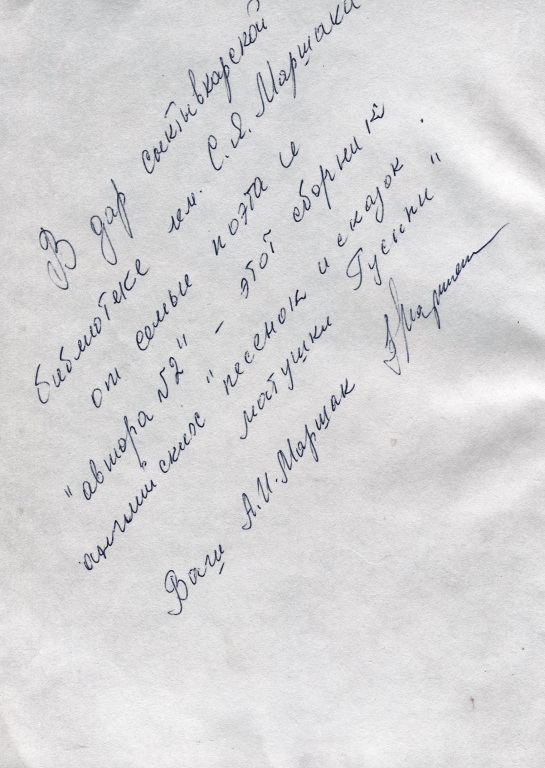 В дар сыктывкарской
библиотеке им. С.Я. Маршака
от семьи поэта и
"автора №2" - этот сборник
английских "песенок и сказок
матушки Гусыни".
Ваш А.И. Маршак